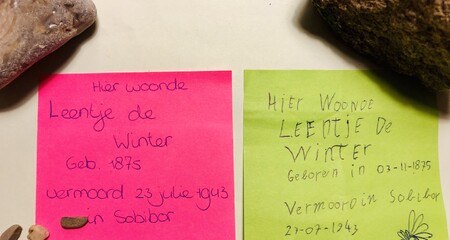 Hier woonde
Leentje de
Winter
Geb. 1875
vermoord 23 julie 1943
in Sobibor
HIER WOONDE
LEENTJE De
WINTER
Geboren in 07-11-1875
Vermoord in Sobibor
23-07-1943